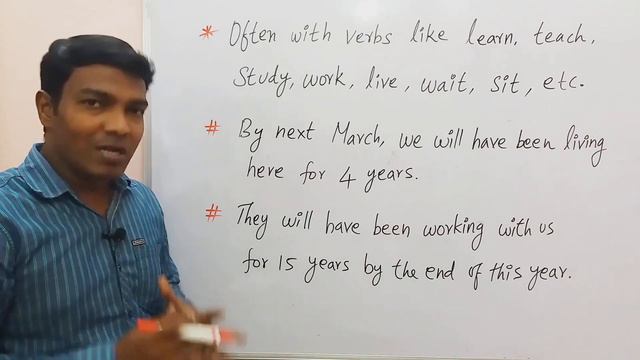 * Often with verbs like learn, teach,
Study, work, live, wait, sit, etc.
# By next March, we will have been living
here for 4 years.
# They will have been working with us
for 15 years by the end of this year.